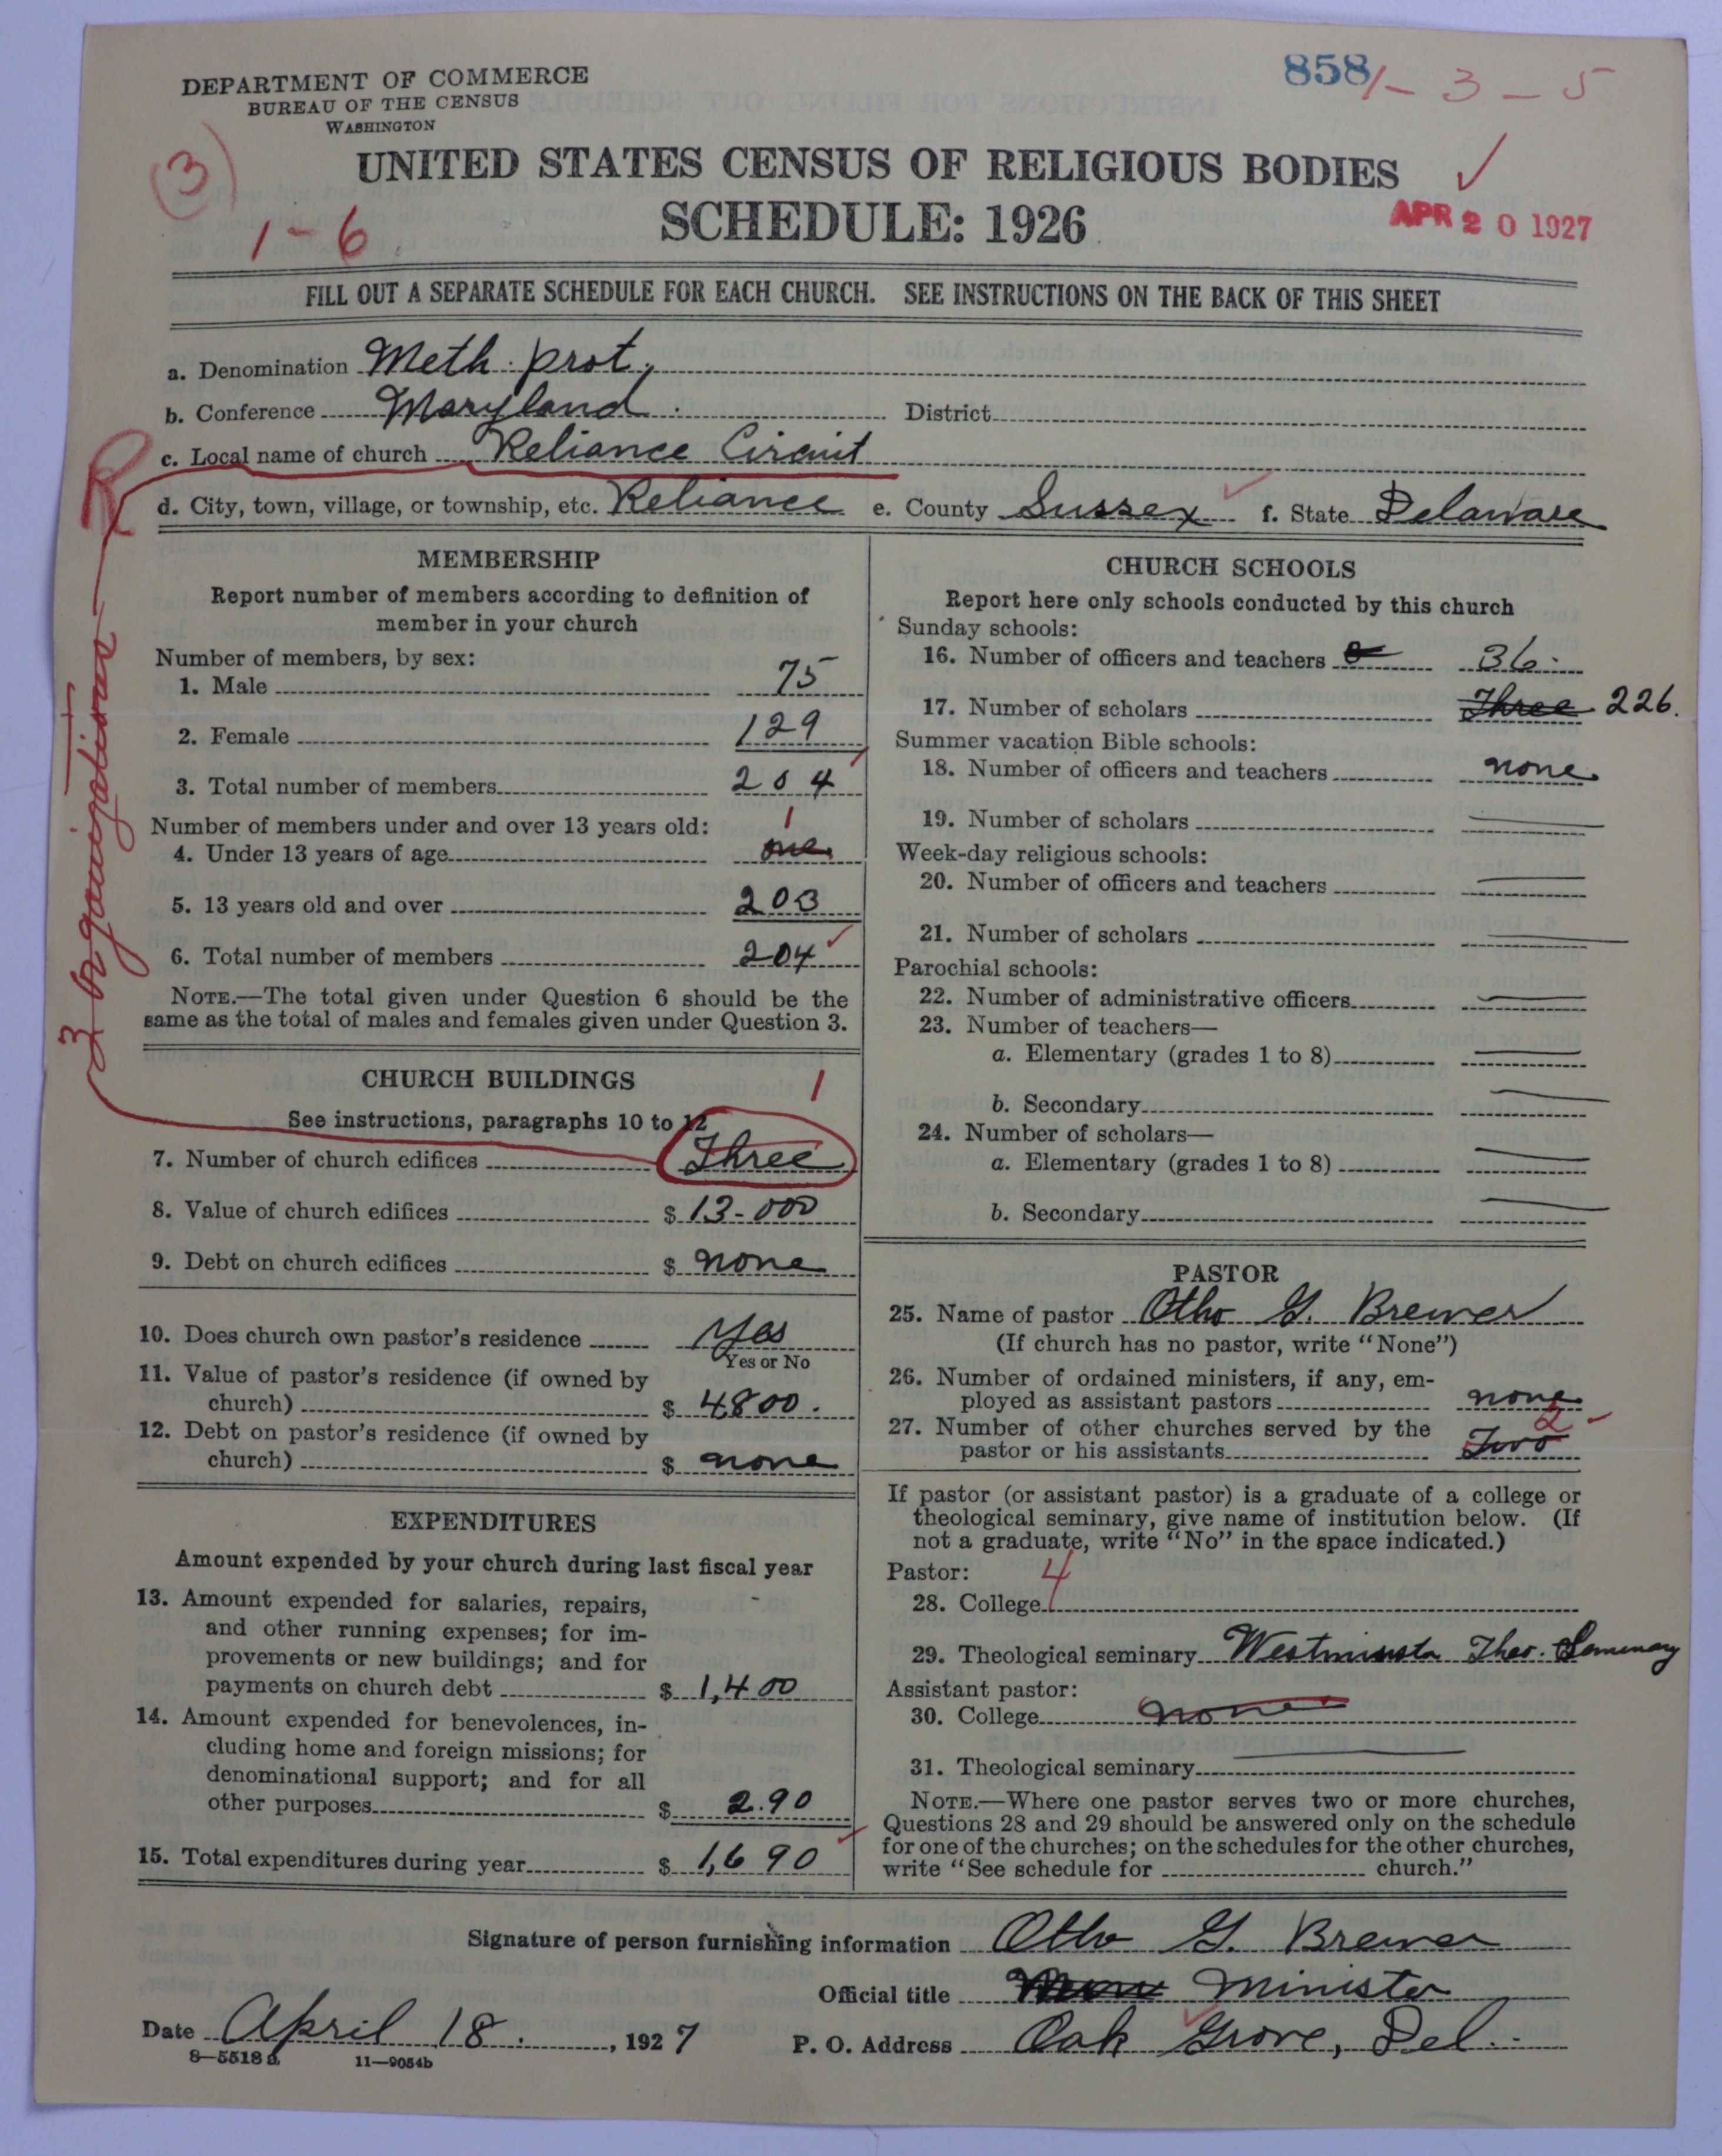 DEPARTMENT OF COMMERCE
BUREAU OF THE CENSUS
WASHINGTON
858
1 - 3 - 5
3
1 - 6
UNITED STATES CENSUS OF RELIGIOUS BODIES
SCHEDULE: 1926
APR 20 1927
FILL OUT A SEPARATE SCHEDULE FOR EACH CHURCH. SEE INSTRUCTIONS ON THE BACK OF THIS SHEET
a. Denomination Meth. Prot.
b. Conference Maryland. District
c. Local name of church Reliance Circuit
d. City, town, village, or township, etc. Reliance e. County Sussex f. State Delaware
3 organizations
R
MEMBERSHIP
Report number of members according to definition of
member in your church
Number of members, by sex:
1. Male 75
2. Female 129
3. Total number of members 204
Number of members under and over 13 years old: 1
4. Under 13 years of age one
5. 13 years old and over 203
6. Total number of members 204
NOTE.—The total given under Question 6 should be the
same as the total of males and females given under Question 3.
CHURCH BUILDINGS 1
See instructions, paragraphs 10 to 12
7. Number of church edifices Three
8. Value of church edifices $ 13-000
9. Debt on church edifices $ none
10. Does church own pastor's residence Yes
Yes or No
11. Value of pastor's residence (if owned by
church) $ 4800.
12. Debt on pastor's residence (if owned by
church) $ none
EXPENDITURES
Amount expended by your church during last fiscal year
13. Amount expended for salaries, repairs,
and other running expenses; for im-
provements or new buildings; and for
payments on church debt $ 1,400
14. Amount expended for benevolences, in-
cluding home and foreign missions; for
denominational support; and for all
other purposes $ 2.90
15. Total expenditures during year $ 1,690
CHURCH SCHOOLS
Report here only schools conducted by this church
Sunday schools:
16. Number of officers and teachers 36.
17. Number of scholars Three 226.
Summer vacation Bible schools:
18. Number of officers and teachers none
19. Number of scholars
Week-day religious schools:
20. Number of officers and teachers
21. Number of scholars
Parochial schools:
22. Number of administrative officers
23. Number of teachers—
a. Elementary (grades 1 to 8)
b. Secondary
24. Number of scholars—
a. Elementary (grades 1 to 8)
b. Secondary
PASTOR
25. Name of pastor Otho G. Brewer
(If church has no pastor, write "None")
26. Number of ordained ministers, if any, em-
ployed as assistant pastors none
27. Number of other churches served by the 2
pastor or his assistants Two
If pastor (or assistant pastor) is a graduate of a college or
theological seminary, give name of institution below. (If
not a graduate, write "No" in the space indicated.)
Pastor: 4
28. College
29. Theological seminary Westminster Theo. Seminary
Assistant pastor:
30. College none
31. Theological seminary
NOTE.—Where one pastor serves two or more churches,
Questions 28 and 29 should be answered only on the schedule
for one of the churches; on the schedules for the other churches,
write "See schedule for church."
Signature of person furnishing information Otho G. Brewer
Official title Minister
Date April 18. , 1927 P. O. Address Oak Grove, Del.
8—5518 a 11—9054b